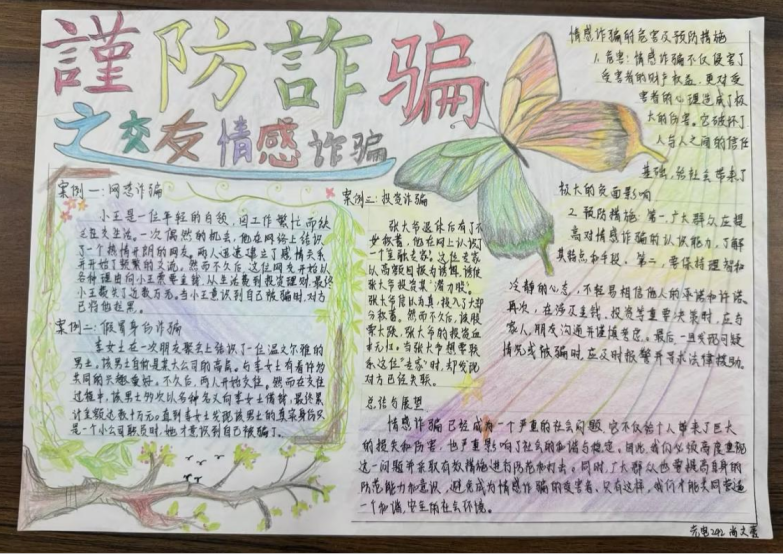 謹防詐骗
之交友情感诈骗
案例一:网恋诈骗
小王是一位年轻的白领，因工作繁忙而缺
乏社交生活。一次偶然的机会，他在网络上结识
了一个热情开朗的网友。两人迅速建立了感情关系
并开始了频繁的交流。然而不久后，这位网友开始以
各种理由向小王索要金钱，从生活费到投资理财，最终
小王损失了近数万元。当小王意识到自己被骗时，对方
已将他拉黑。
案例二:假冒身份诈骗
李女士在一次朋友聚会上结识了一位温文尔雅的
男士。该男士自称是某大公司的高层，与李女士有着许多
共同的兴趣爱好。不久后，两人开始交往。然而在交往
过程中，该男士多次以各种名义向李女士借钱，最终累
计金额达数十万元。直到李女士发现该男士的真实身份只
是一个小公司职员时，她才意识到自己被骗了。
案例三:投资诈骗
张大爷退休后有了不
少积蓄，他在网上认识了
一个"金融专家"。这位专家
以高额回报为诱饵，诱使
张大爷投资某"潜力股"。
张大爷信以为真，投入了大部
分积蓄。然而不久后，该股
票大跌，张大爷的投资血
本无归。当张大爷想要联
系这位"专家"时，却发现
对方已经失联。
总结与展望
情感诈骗已经成为一个严重的社会问题，它不仅给个人带来了巨大
的损失和伤害，也严重影响了社会的和谐与稳定。因此，我们必须高度重视
这一问题并采取有效措施进行防范和打击。同时，广大群众也要提高自身的
防范能力和意识，避免成为情感诈骗的受害者。只有这样，我们才能共同营造
一个和谐、安全的社会环境。
情感诈骗的危害及预防措施
1.危害:情感诈骗不仅侵害了
受害者的财产权益，更对受
害者的心理造成了极
大的伤害。它破坏了
人与人之间的信任
基础，给社会带来了
极大的负面影响
2.预防措施:第一，广大群众应提
高对情感诈骗的认识能力，了解
其特点和手段。第二，要保持理智和
冷静的心态，不轻易相信他人的承诺和许诺。
再次，在涉及金钱、投资等重要决策时，应与
家人、朋友沟通并谨慎考虑。最后，一旦发现可疑
情况或被骗时，应及时报警并寻求法律援助。
光电2412 尚文蕾